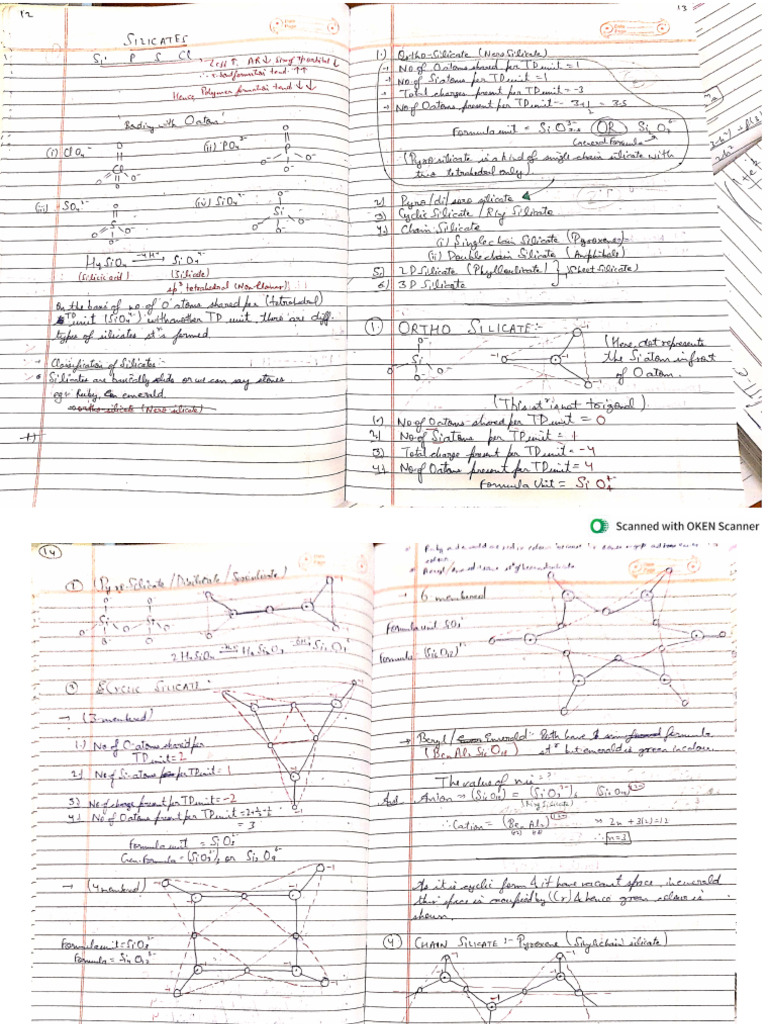 12
SILICATES
Si P S Cl
Hence Polymer formation tend ↓↓
Bonding with O atoms
(i) ClO4⁻
(ii) PO4³⁻
(iii) SO4²⁻
(iv) SiO4⁴⁻
H4SiO4 → SiO4⁴⁻
(Silicic acid) (Silicate)
sp³ tetrahedral (Non-Planar)
On the basis of no. of O atoms shared per (tetrahedral)
TD unit (SiO4⁴⁻) with another TD unit, there are diff.
types of silicates formed.
Classification of Silicates:-
Silicates are basically solids or we can say stones
eg: Ruby, emerald.
ortho-silicate (Neso silicate)
13
1.) Ortho-Silicate (Neso Silicate)
→ No of O atoms shared per TD unit = 1
→ No of Si atoms per TD unit = 1
→ Total charges present per TD unit = -3
→ No of O atoms present per TD unit = 3+1/2 = 3.5
Formula unit = SiO3.5³⁻ OR Si2O7⁶⁻
General formula
(Pyrosilicate is a kind of single chain silicate with
two tetrahedral only).
2) Pyro/di/soro silicate
3) Cyclic Silicate / Ring Silicate
4) Chain Silicate
(i) Single chain Silicate (Pyroxene)
(ii) Double chain Silicate (Amphibole)
5) 2D Silicate (Phyllosilicate) (Sheet Silicate)
6) 3D Silicate
1. ORTHO SILICATE:-
(Here, dot represents
the Si atom in front
of O atom.
(This is not trigonal).
1.) No of O atoms shared per TD unit = 0
2) No of Si atoms per TD unit = 1
3) Total charge present per TD unit = -4
4) No of O atoms present per TD unit = 4
Formula Unit = SiO4⁴⁻
Scanned with OKEN Scanner
14
2 (Pyro-Silicate/Disilicate/Sorosilicate)
2H4SiO4 → H6Si2O7 → Si2O7⁶⁻
3 CYCLIC SILICATE:-
→ (3-membered)
1.) No of O atoms shared per
TD unit = 2
2.) No of Si atoms per TD unit = 1
3) No of charge present per TD unit = -2
4.) No of O atoms present per TD unit = 2+1/2+1/2
= 3
Formula unit = SiO3²⁻
Gen. Formula = (SiO3)3 or Si3O9⁶⁻
→ (4 membered)
Formula unit = SiO3²⁻
Formula = Si4O12⁸⁻
→ 6 membered
Formula unit SiO3²⁻
Formula (Si6O18)¹²⁻
→ Beryl / Emerald:- Both have formula
(Be3Al2Si6O18) but emerald is green in colour.
The value of n is:-?
Ans. Anion → (Si6O18) = (SiO3²⁻)6 (Si6O18)¹²⁻
(Ring Silicate)
∴ Cation = (Ben Al2)¹²⁺ ⇒ 2n + 3(2) = 12
∴ n=3
As it is cyclic form & it have vacant space, in emerald
this space is occupied by (Cr) & hence green colour is
shown.
4 CHAIN SILICATE:- Pyroxene (Single chain silicate)